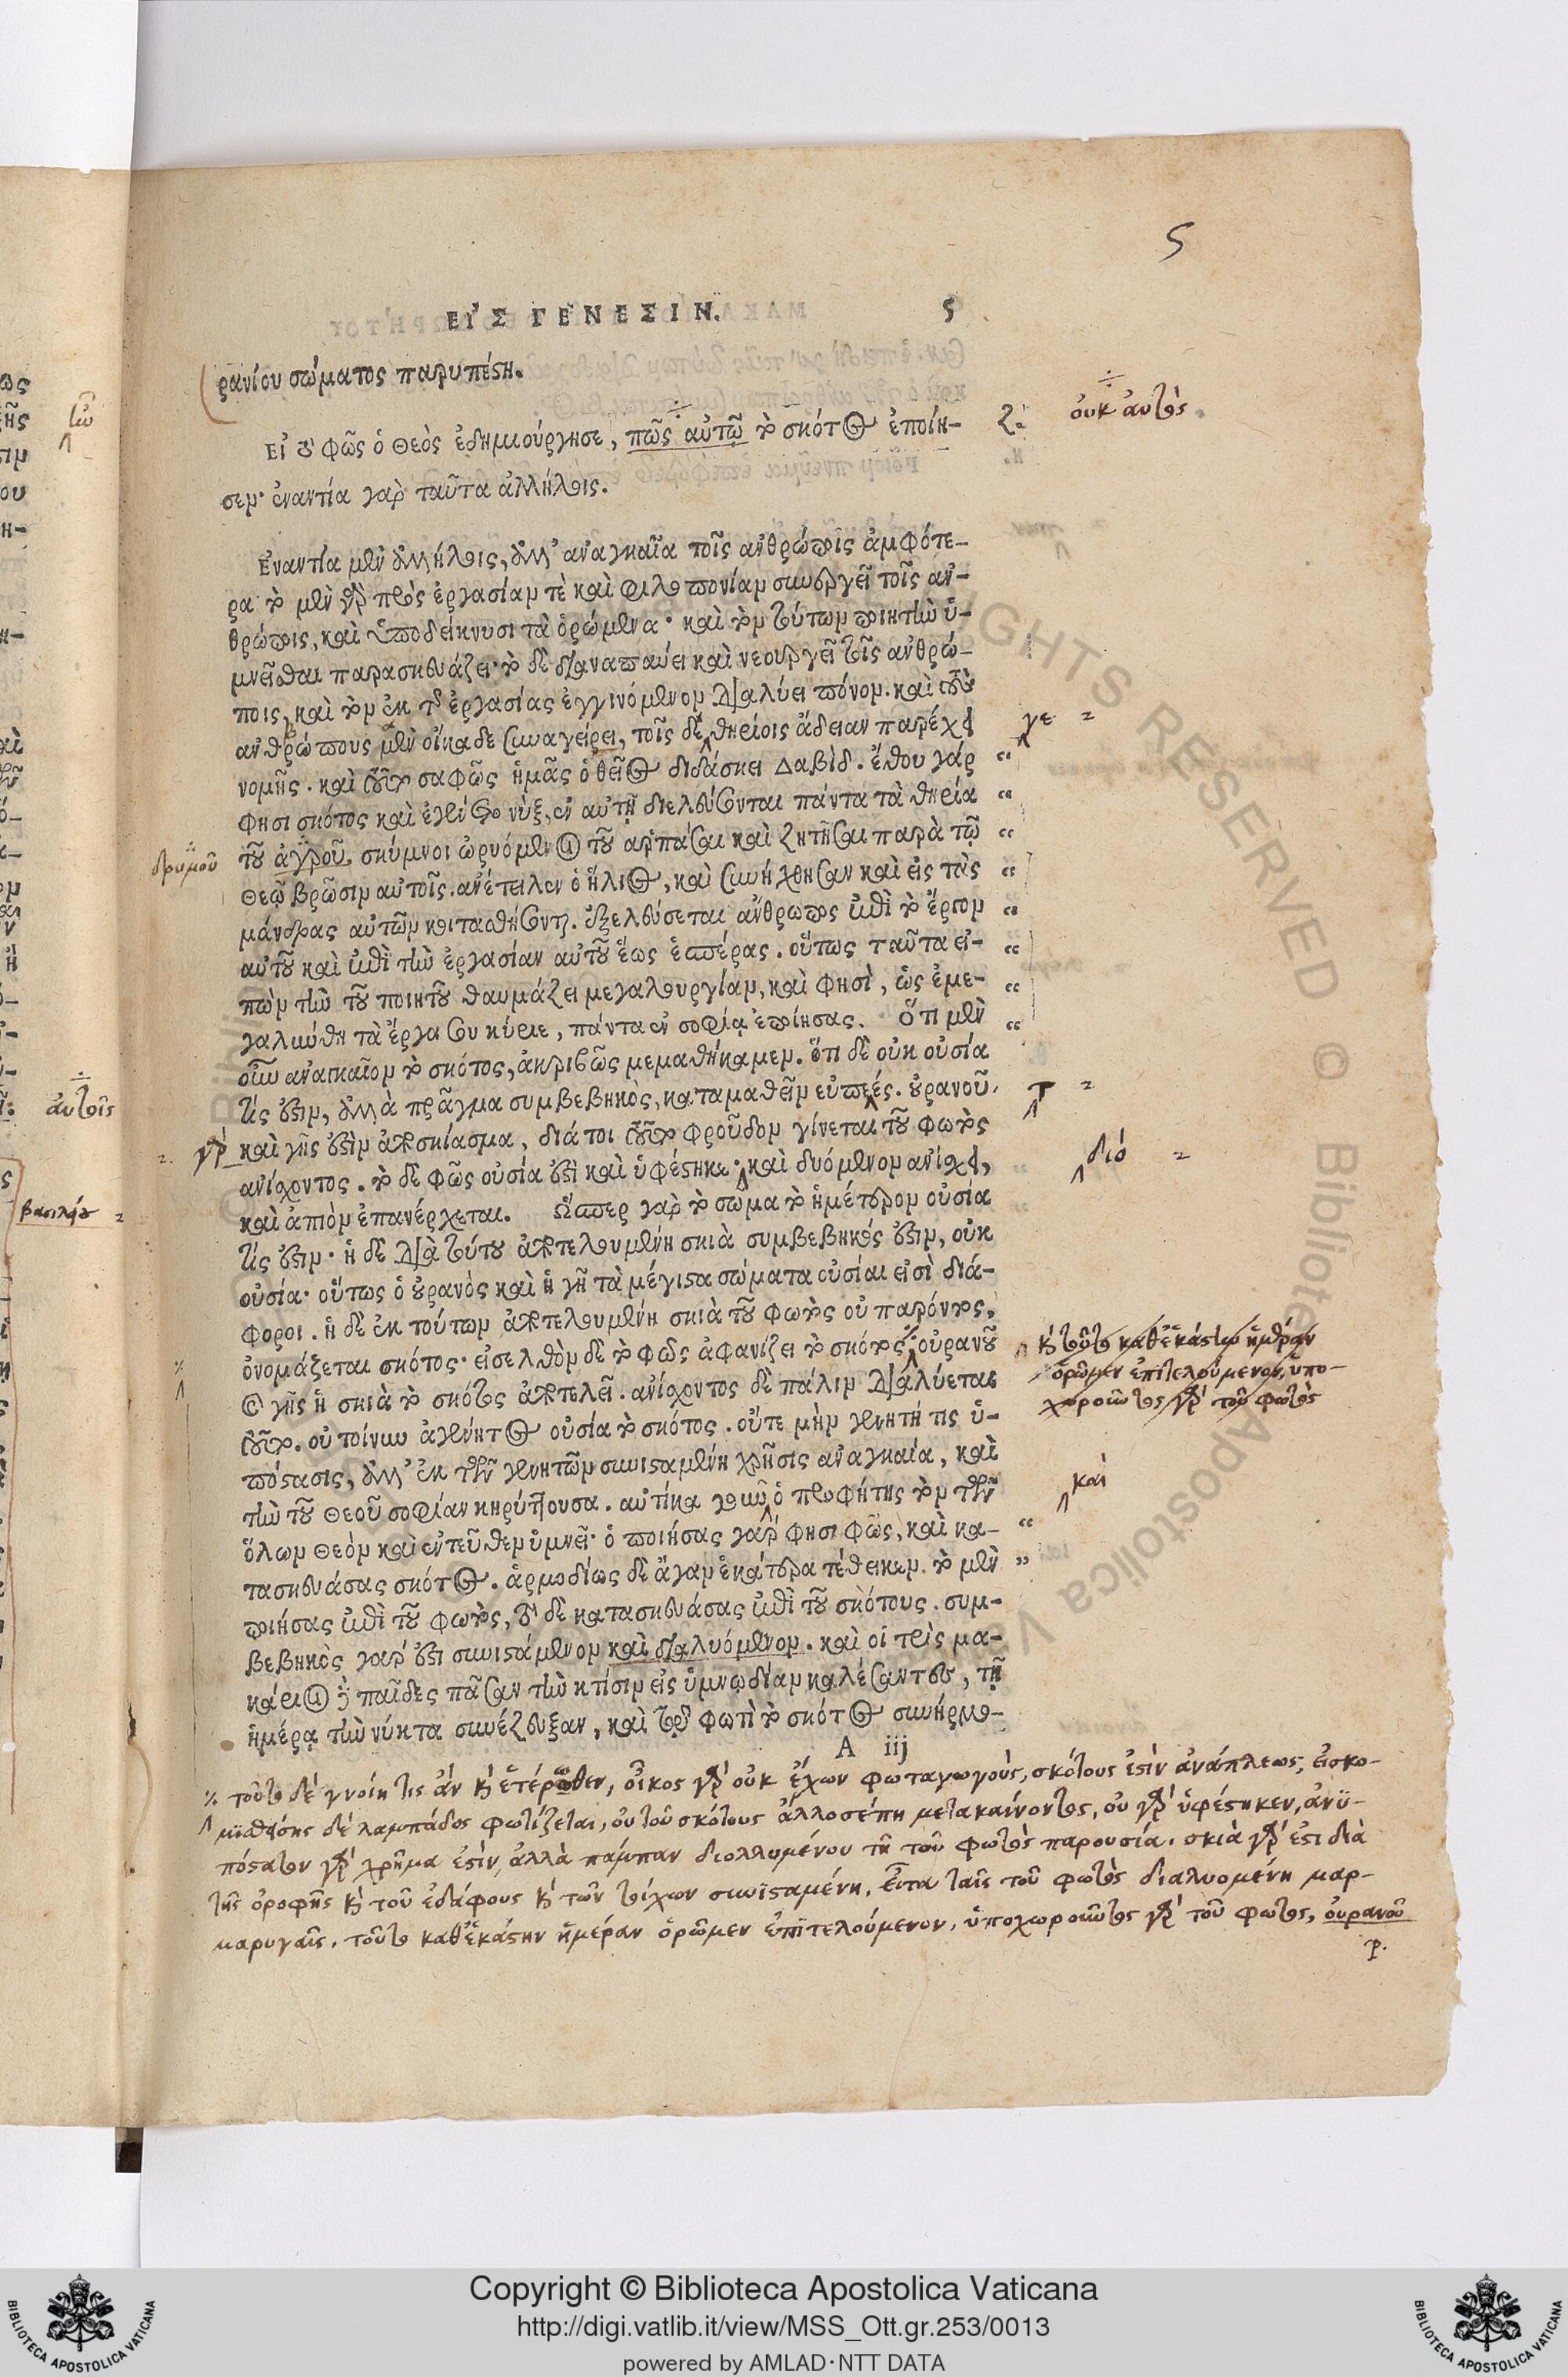 ς
ΕΙ᾿Σ ΓΕΝΕΣΙΝ. ς
ρανίου σώματος παρυπέστη.
Εἰ τὸ φῶς ὁ Θεὸς ἐδημιούργησε, πῶς αὐτῷ τὸ σκότος ἐποίη- ζ.
οὐκ αὐτὸς
σεν· ἐναντία γὰρ ταῦτα ἀλλήλοις.
Ἐναντία μὲν ἀλλήλοις, ἀλλ᾽ ἀναγκαῖα τοῖς ἀνθρώποις ἀμφότε-
ρα τὸ μὲν γὰρ πρὸς ἐργασίαν τὲ καὶ φιλοπονίαν συνεργεῖ τοῖς ἀν-
θρώποις, καὶ ὑποδείκνυσι τὰ ὁρώμενα· καὶ τὸν τούτων ποιητὴν ὑ-
μνεῖσθαι παρασκευάζει· τὸ δὲ διαναπαύει καὶ νεουργεῖ τοῖς ἀνθρώ-
ποις, καὶ τὸν ἐκ τῆς ἐργασίας ἐγγινόμενον διαλύει πόνον. καὶ τοὺς
ἀνθρώπους μὲν οἴκαδε συναγείρει, τοῖς δὲ θηρίοις ἄδειαν παρέχει
γε
νομῆς. καὶ τοῦτο σαφῶς ἡμᾶς ὁ θεῖος διδάσκει Δαβίδ. ἔθου γάρ
φησι σκότος καὶ ἐγένετο νὺξ, ἐν αὐτῇ διελεύσονται πάντα τὰ θηρία
τοῦ ἀγροῦ. σκύμνοι ὠρυόμενοι τοῦ ἁρπάσαι καὶ ζητῆσαι παρὰ τῷ
δρυμοῦ
Θεῷ βρῶσιν αὐτοῖς. ἀνέτειλεν ὁ ἥλιος, καὶ συνήχθησαν καὶ εἰς τὰς
μάνδρας αὐτῶν κοιτασθήσονται. ἐξελεύσεται ἄνθρωπος ἐπὶ τὸ ἔργον
αὐτοῦ καὶ ἐπὶ τὴν ἐργασίαν αὐτοῦ ἕως ἑσπέρας. οὕτως ταῦτα εἰ-
πὼν τὴν τοῦ ποιητοῦ θαυμάζει μεγαλουργίαν, καὶ φησὶ, ὡς ἐμε-
γαλύνθη τὰ ἔργα σου κύριε, πάντα ἐν σοφίᾳ ἐποίησας. Ὅτι μὲν
οὖν ἀναγκαῖον τὸ σκότος, ἀκριβῶς μεμαθήκαμεν. ὅτι δὲ οὐκ οὐσία
τίς ἐστιν, ἀλλὰ πρᾶγμα συμβεβηκὸς, καταμαθεῖν εὐπετές. οὐρανοῦ,
τ
γὰρ καὶ γῆς ἐστὶν ἀποσκίασμα, διάτοι τοῦτο φροῦδον γίνεται τοῦ φωτὸς
ἀνίσχοντος. τὸ δὲ φῶς οὐσία ἐστὶ καὶ ὑφέστηκε· καὶ δυόμενον ἀνίσχει,
διό
καὶ ἀπιὸν ἐπανέρχεται. Ὥσπερ γὰρ τὸ σῶμα τὸ ἡμέτερον οὐσία
τίς ἐστιν· ἡ δὲ διὰ τούτου ἀποτελουμένη σκιὰ συμβεβηκός ἐστιν, οὐκ
οὐσία· οὕτως ὁ οὐρανὸς καὶ ἡ γῆ τὰ μέγιστα σώματα οὐσίαι εἰσὶ διά-
φοροι. ἡ δὲ ἐκ τούτων ἀποτελουμένη σκιὰ τοῦ φωτὸς οὐ παρόντος,
ὀνομάζεται σκότος· εἰσελθὸν δὲ τὸ φῶς ἀφανίζει τὸ σκότος· οὐρανοῦ
καὶ τοῦτο καθ᾽ ἑκάστην ἡμέραν
ὁρῶμεν ἐπιτελούμενον, ὑπο-
χωροῦντος γὰρ τοῦ φωτὸς
καὶ γῆς ἡ σκιὰ τὸ σκότος ἀποτελεῖ. ἀνίσχοντος δὲ πάλιν διαλύεται
τοῦτο. οὐ τοίνυν ἀγένητος οὐσία τὸ σκότος. οὔτε μὴν γενητή τις ὑ-
πόστασις, ἀλλ᾽ ἐκ τῶν γενητῶν συνισταμένη χρῆσις ἀναγκαία, καὶ
τὴν τοῦ Θεοῦ σοφίαν κηρύττουσα. αὐτίκα γοῦν ὁ προφήτης τὸν τῶν
καὶ
ὅλων Θεὸν καὶ ἐντεῦθεν ὑμνεῖ· ὁ ποιήσας γάρ φησι φῶς, καὶ κα-
τασκευάσας σκότος. ἁρμοδίως δὲ ἄγαν ἑκάτερα τέθεικεν. τὸ μὲν
ποιήσας ἐπὶ τοῦ φωτὸς, τὸ δὲ κατασκευάσας ἐπὶ τοῦ σκότους. συμ-
βεβηκὸς γάρ ἐστι συνιστάμενον καὶ διαλυόμενον. καὶ οἱ τρὶς μα-
κάριοι δὲ παῖδες πᾶσαν τὴν κτίσιν εἰς ὑμνῳδίαν καλέσαντες, τῇ
ἡμέρᾳ τὴν νύκτα συνέζευξαν, καὶ τῷ φωτὶ τὸ σκότος συνήρμο-
A iij
τοῦτο δέ γνοίη τις ἀν καὶ ἑτέρωθεν, οἶκος γὰρ οὐκ ἔχων φωταγωγοὺς, σκότους ἐστὶν ἀνάπλεως, εἰσκο-
μισθείσης δὲ λαμπάδος φωτίζεται, οὐ τοῦ σκότους ἀλλοσέπη μεταβαίνοντος, οὐ γὰρ ὑφέστηκεν, ἀνυ-
πόστατον γὰρ χρῆμα ἐστὶν, ἀλλὰ πάμπαν διολλυμένου τῆ τοῦ φωτὸς παρουσία. σκιὰ γὰρ ἐστι διὰ
τῆς ὀροφῆς καὶ τοῦ ἐδάφους καὶ τῶν τοίχων συνισταμένη, εἶτα ταῖς τοῦ φωτὸς διαλυομένη μαρ-
μαρυγαῖς. τοῦτο καθ᾽ ἑκάστην ἡμέραν ὁρῶμεν ἐπιτελούμενον, ὑποχωροῦντος γὰρ τοῦ φωτὸς, οὐρανοῦ
αὐτοῖς
βασιλέως
Copyright © Biblioteca Apostolica Vaticana
http://digi.vatlib.it/view/MSS_Ott.gr.253/0013
powered by AMLAD·NTT DATA